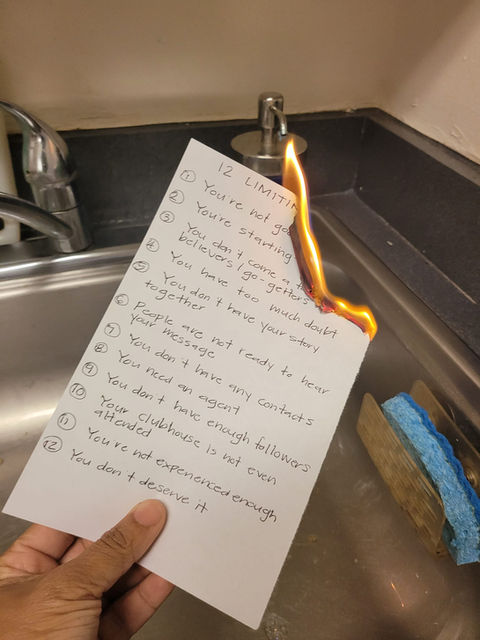 12 LIMITIN
① You're not go
② You're starting
③ You don't come a t
believers/go-getters
④ You have too much doubt
⑤ You don't have your story
together
⑥ People are not ready to hear
your message
⑦ You don't have any contacts
⑧ You need an agent
⑨ You don't have enough followers
⑩ Your clubhouse is not even
attended
⑪ You're not experienced enough
⑫ You don't deserve it